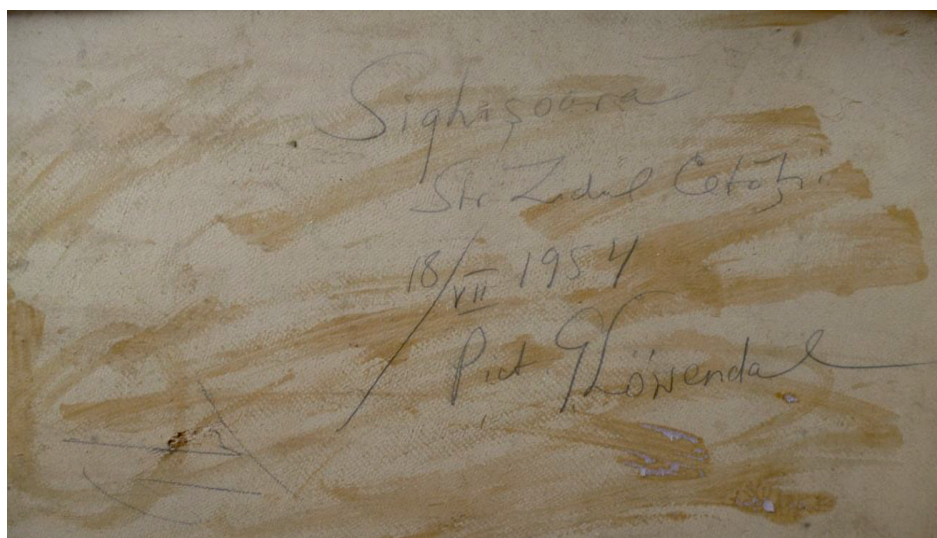 Sighișoara
Str Zidul Cetății
18/VII 1954
Pict. G Löwendal